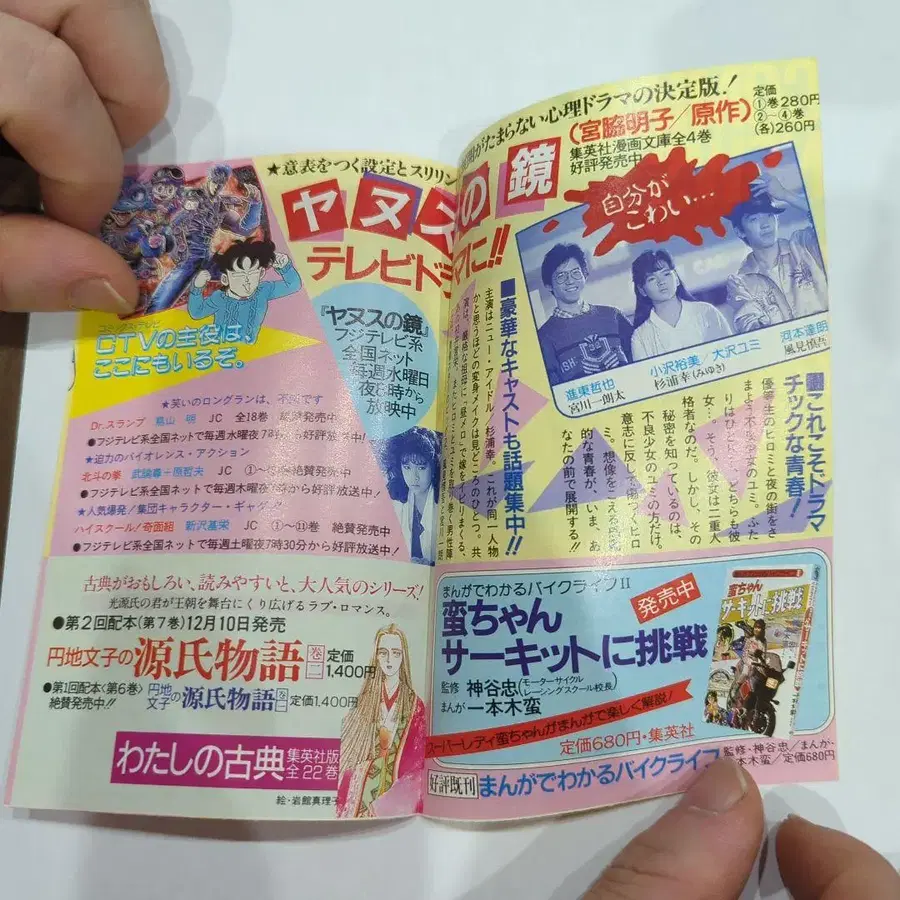 ★意表をつく設定とスリリン
がたまらない心理ドラマの決定版!
ヤヌス
の鏡
(宮脇明子/原作)
集英社漫画文庫全4巻
好評発売中
定価
①巻280円
②〜④巻
(各)260円
テレビドラ
マに!!
自分が
こわい…
『ヤヌスの鏡』
フジテレビ系
全国ネット
毎週水曜日
夜8時から
放映中
進東哲也
宮川一朗太
小沢裕美/大沢ユミ
杉浦幸(みゆき)
河本達朗
風見慎吾
コミックス・テレビ
CTVの主役は、
ここにもいるぞ。
★笑いのロングランは、不滅です
Dr.スランプ 鳥山 明 JC 全18巻 絶賛発売中
●フジテレビ系全国ネットで毎週水曜夜7時から好評放送中!
★迫力のバイオレンス・アクション
北斗の拳 武論尊-原哲夫 JC 絶賛発売中
●フジテレビ系全国ネットで毎週木曜夜7時から好評放送中!
★人気爆発/集団キャラクター・ギャグ
ハイスクール!奇面組 新沢基栄 JC ①〜⑪巻 絶賛発売中
●フジテレビ系全国ネットで毎週土曜夜7時30分から好評放送中!
■豪華なキャストも話題集中!!
主演はニュー・アイドル/杉浦幸。これが同一人物
かと思うほどの変身メイクは見どころのひとつ。共
演は、厳格な祖母に
■これこそドラマ
チックな青春!
優等生のヒロミと夜の街をさ
まよう不良少女のユミ。ふた
りはひとり。どちらも彼
女…。そう、彼女は二重人
格者なのだ。しかし、その
秘密を知っているのは、
不良少女のユミの方だけ。
意志に反して傷つくヒロ
ミ。想像をこえる衝撃
的な青春が、いま、あ
なたの前で展開する!!
古典がおもしろい、読みやすいと、大人気のシリーズ!
光源氏の君が王朝を舞台にくり広げるラブ・ロマンス。
●第2回配本(第7巻)12月10日発売
円地文子の源氏物語 巻二 定価1,400円
●第1回配本(第6巻)絶賛発売中!! 円地文子の源氏物語 巻一 定価1,400円
わたしの古典 集英社版全22巻
絵・岩館真理子
まんがでわかるバイクライフII
蛮ちゃん
サーキットに挑戦
発売中
監修 神谷忠(モーターサイクルレーシングスクール校長)
まんが 一本木蛮
スーパーレディ蛮ちゃんがまんがで楽しく解説!
定価680円・集英社
蛮ちゃん
サーキットに挑戦
好評既刊 まんがでわかるバイクライフ
監修・神谷忠/まんが・
本木蛮/定価680円